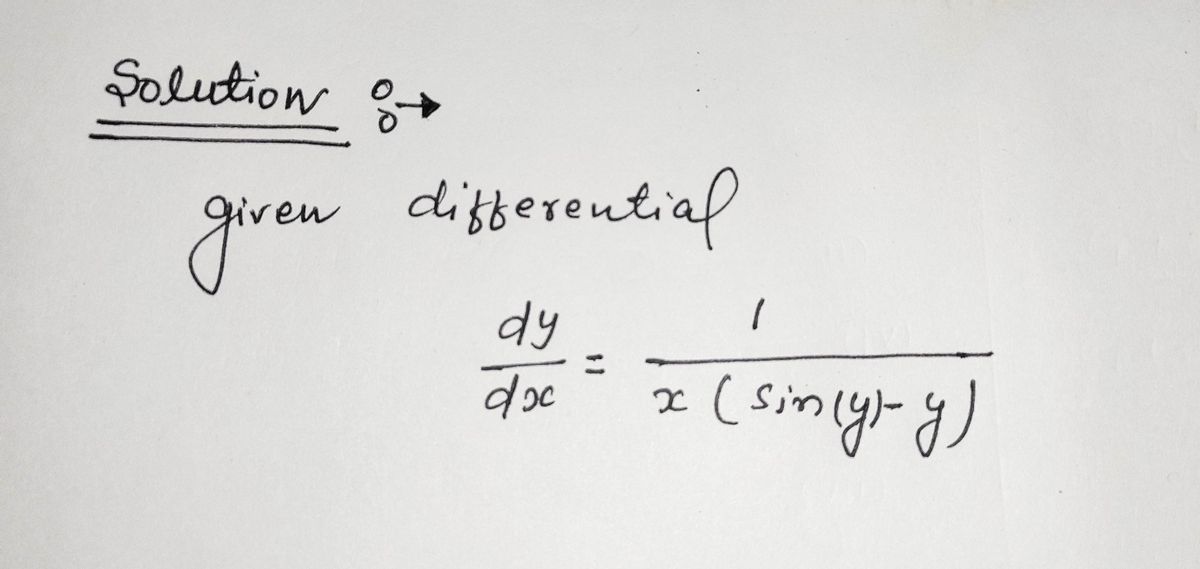 Solution :→
given differential
dy/dx = 1/(x (sin(y)-y))